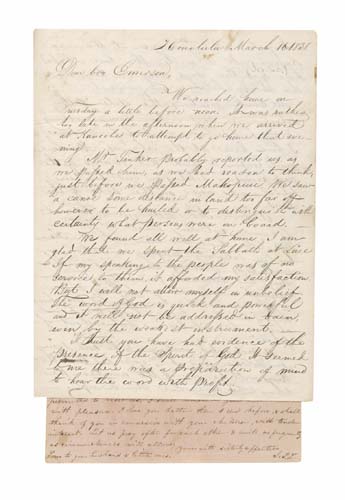 Honolulu March 16 1838
Dear bro. Emerson,
We reached home on
Tuesday a little before noon. It was rather
too late in the afternoon when we arrived
at to attempt to go home that eve
ning.
Mr. Tinker probably reported us as
we passed him, as we had reason to think,
just before we passed Makapuu. We saw
a canoe some distance in land too far off
however to be hailed or to distinguish with
certainty what persons were on board.
We found all well at home. I am
glad that we spent the Sabbath at
If my speaking to the people was of no
service to them it afforded me satisfaction
But I will not allow myself in unbelief
The word of God is quick and powerful
and it will not be addressed in vain,
even by the weakest instrument.
I think you have had evidence of the
presence of the Spirit of God. It seemed
to me there was a preparation of mind
to hear the word with profit.
with pleasure. I love you better than I did before, & shall
think of you in connexion with your children, with tender
interest. Let us pray often for each other & write as frequently
as circumstances will allow.
Yours with sisterly affection
Love to your husband & little ones.